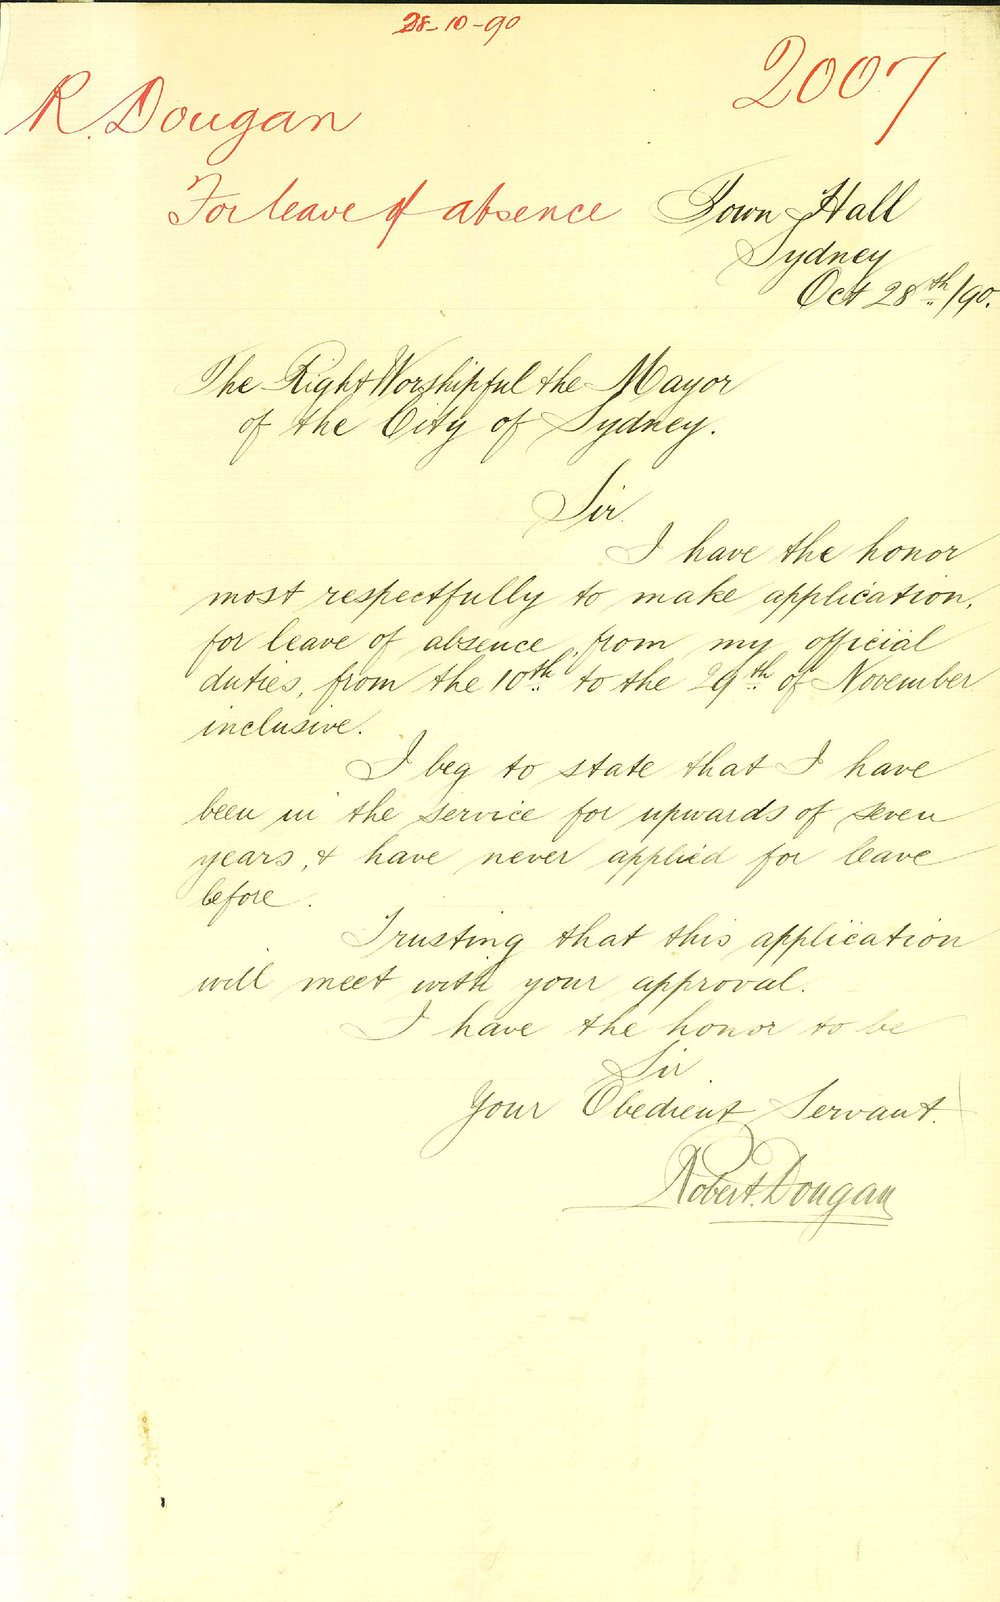 28-10-90
2007
R. Dougan
For leave of absence
Town Hall
Sydney
Oct 28th /90.
The Right Worshipful the Mayor
of the City of Sydney.
Sir.
I have the honor
most respectfully to make application,
for leave of absence, from my official
duties, from the 10th to the 29th of November
inclusive.
I beg to state that I have
been in the service for upwards of seven
years, & have never applied for leave
before.
Trusting that this application
will meet with your approval.
I have the honor to be
Sir
Your Obedient Servant.
Robert Dougan